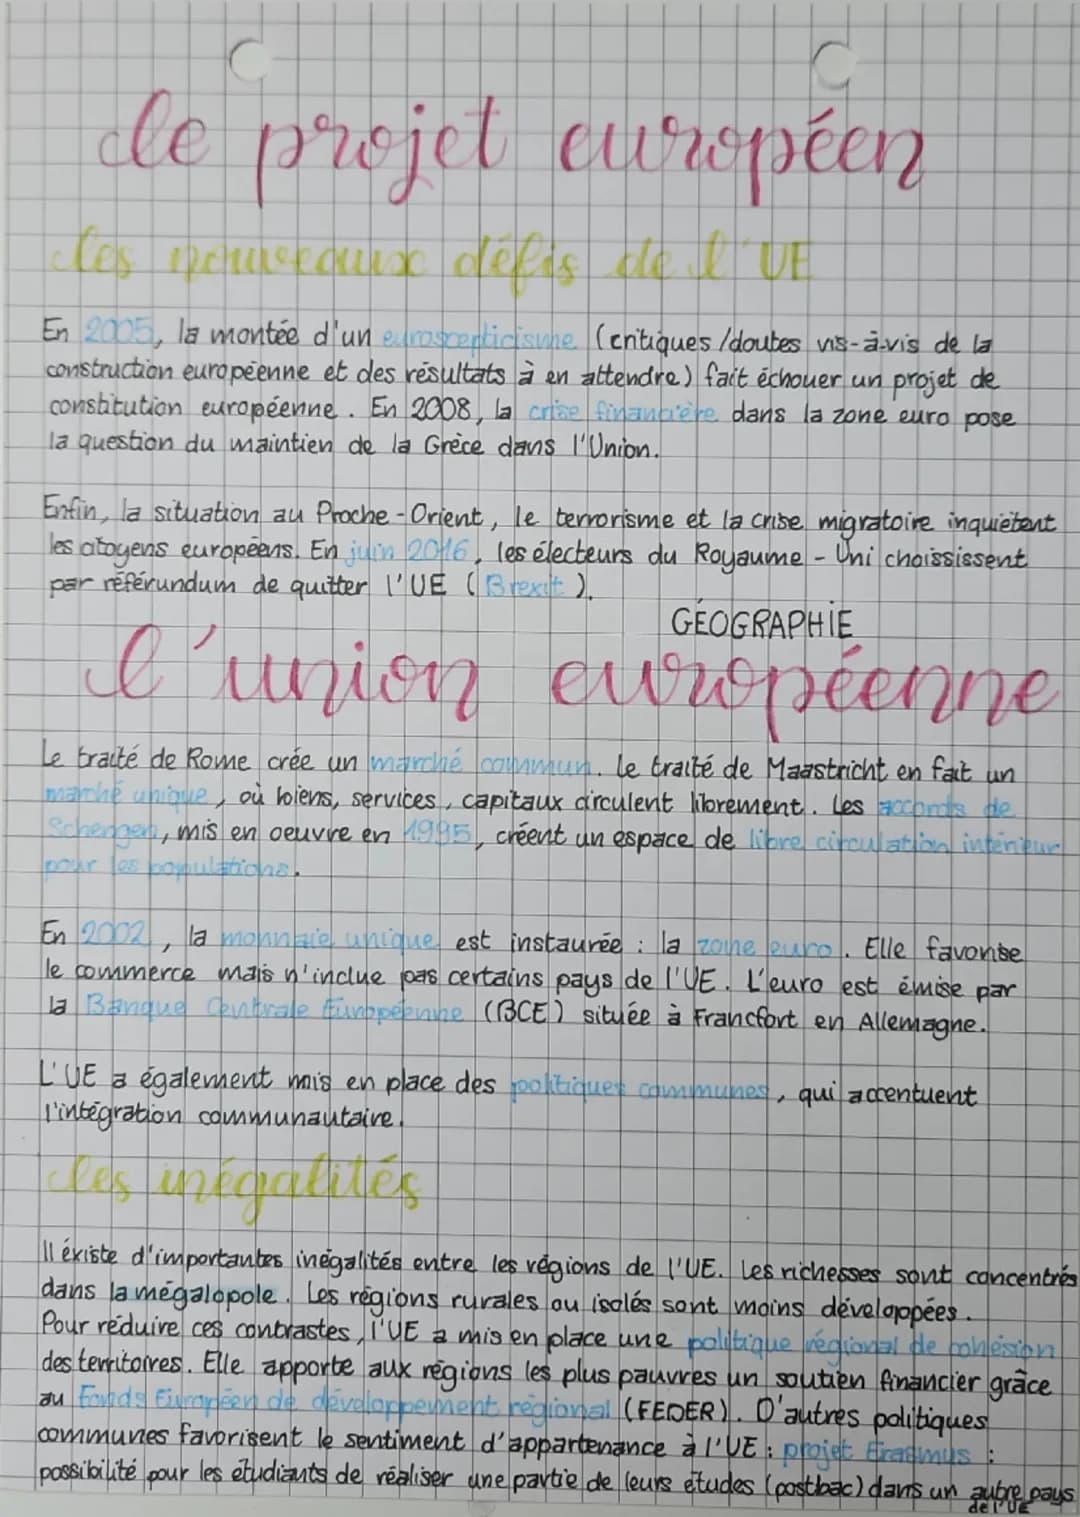 le projet européen
les nouveaux défis de l'UE
En 2005, la montée d'un euroscepticisme (critiques/doutes vis-à-vis de la
construction européenne et des résultats à en attendre) fait échouer un projet de
constitution européenne. En 2008, la crise financière dans la zone euro pose
la question du maintien de la Grèce dans l'Union.
Enfin, la situation au Proche-Orient, le terrorisme et la crise migratoire inquiètent
les citoyens européens. En juin 2016, les électeurs du Royaume-Uni choississent
par référundum de quitter l'UE (Brexit).
GÉOGRAPHIE
l'union européenne
Le traité de Rome crée un marché commun. Le traité de Maastricht en fait un
marché unique, où biens, services, capitaux circulent librement. Les accords de
Schengen, mis en oeuvre en 1995, créent un espace de libre circulation intérieur
pour les populations.
En 2002, la monnaie unique est instaurée : la zone euro. Elle favorise
le commerce mais n'inclue pas certains pays de l'UE. L'euro est émise par
la Banque Centrale Européenne (BCE) située à Francfort en Allemagne.
L'UE a également mis en place des politiques communes, qui accentuent
l'intégration communautaire.
les inégalités
Il éxiste d'importantes inégalités entre les régions de l'UE. Les richesses sont concentrés
dans la mégalopole. Les régions rurales ou isolés sont moins développées.
Pour réduire ces contrastes, l'UE a mis en place une politique régional de cohésion
des territoires. Elle apporte aux régions les plus pauvres un soutien financier grâce
au Fonds Européen de développement régional (FEDER). D'autres politiques
communes favorisent le sentiment d'appartenance à l'UE : projet Erasmus :
possibilité pour les étudiants de réaliser une partie de leurs études (postbac) dans un autre pays
de l'UE